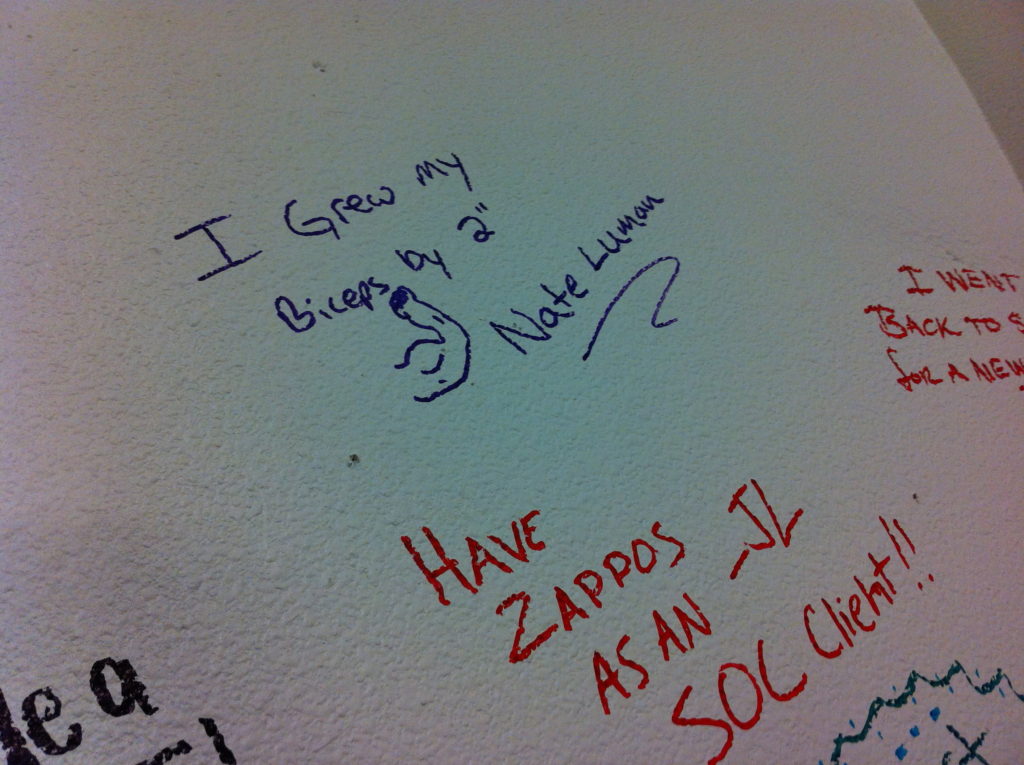 I Grew my
Biceps by 2"
Nate Luman
I WENT
BACK TO S
for A NEW
HAVE
ZAPPOS -JL
AS AN
SOC Client!!
le a